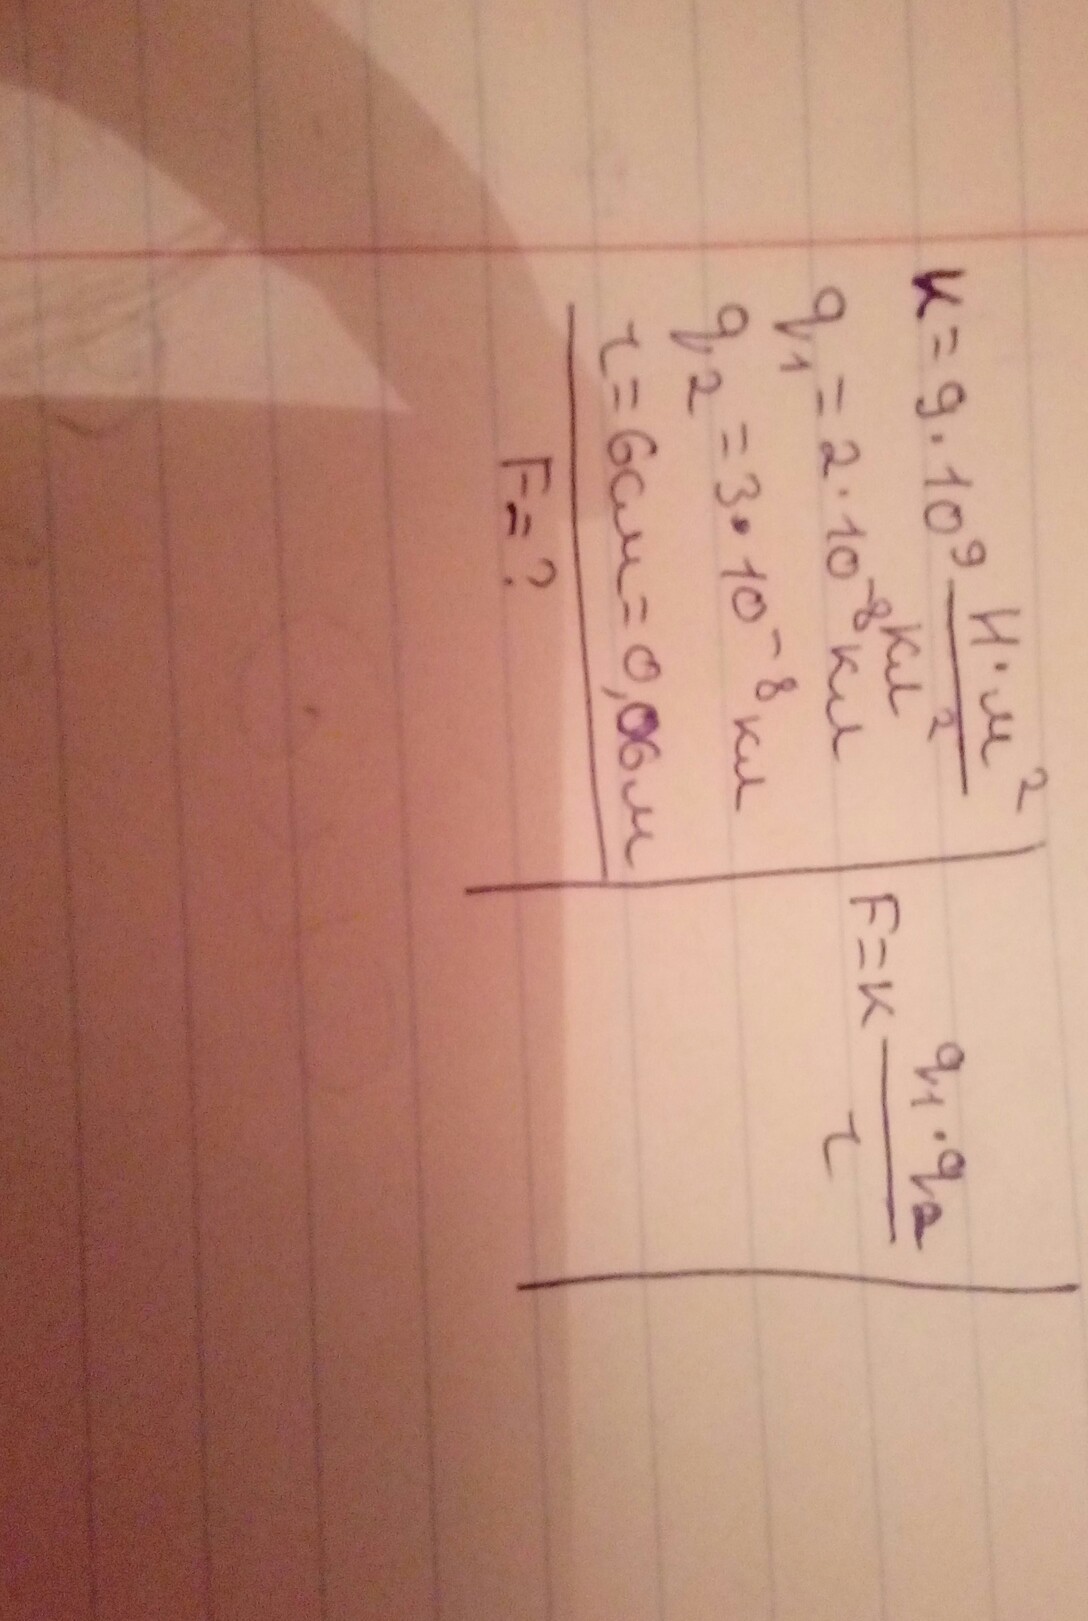 к = 9 · 10⁹ Н·м²/Кл²
q₁ = 2 · 10⁻⁸ Кл
q₂ = 3 · 10⁻⁸ Кл
r = 6см = 0,06м
F = ?
F = к q₁ · q₂ / r